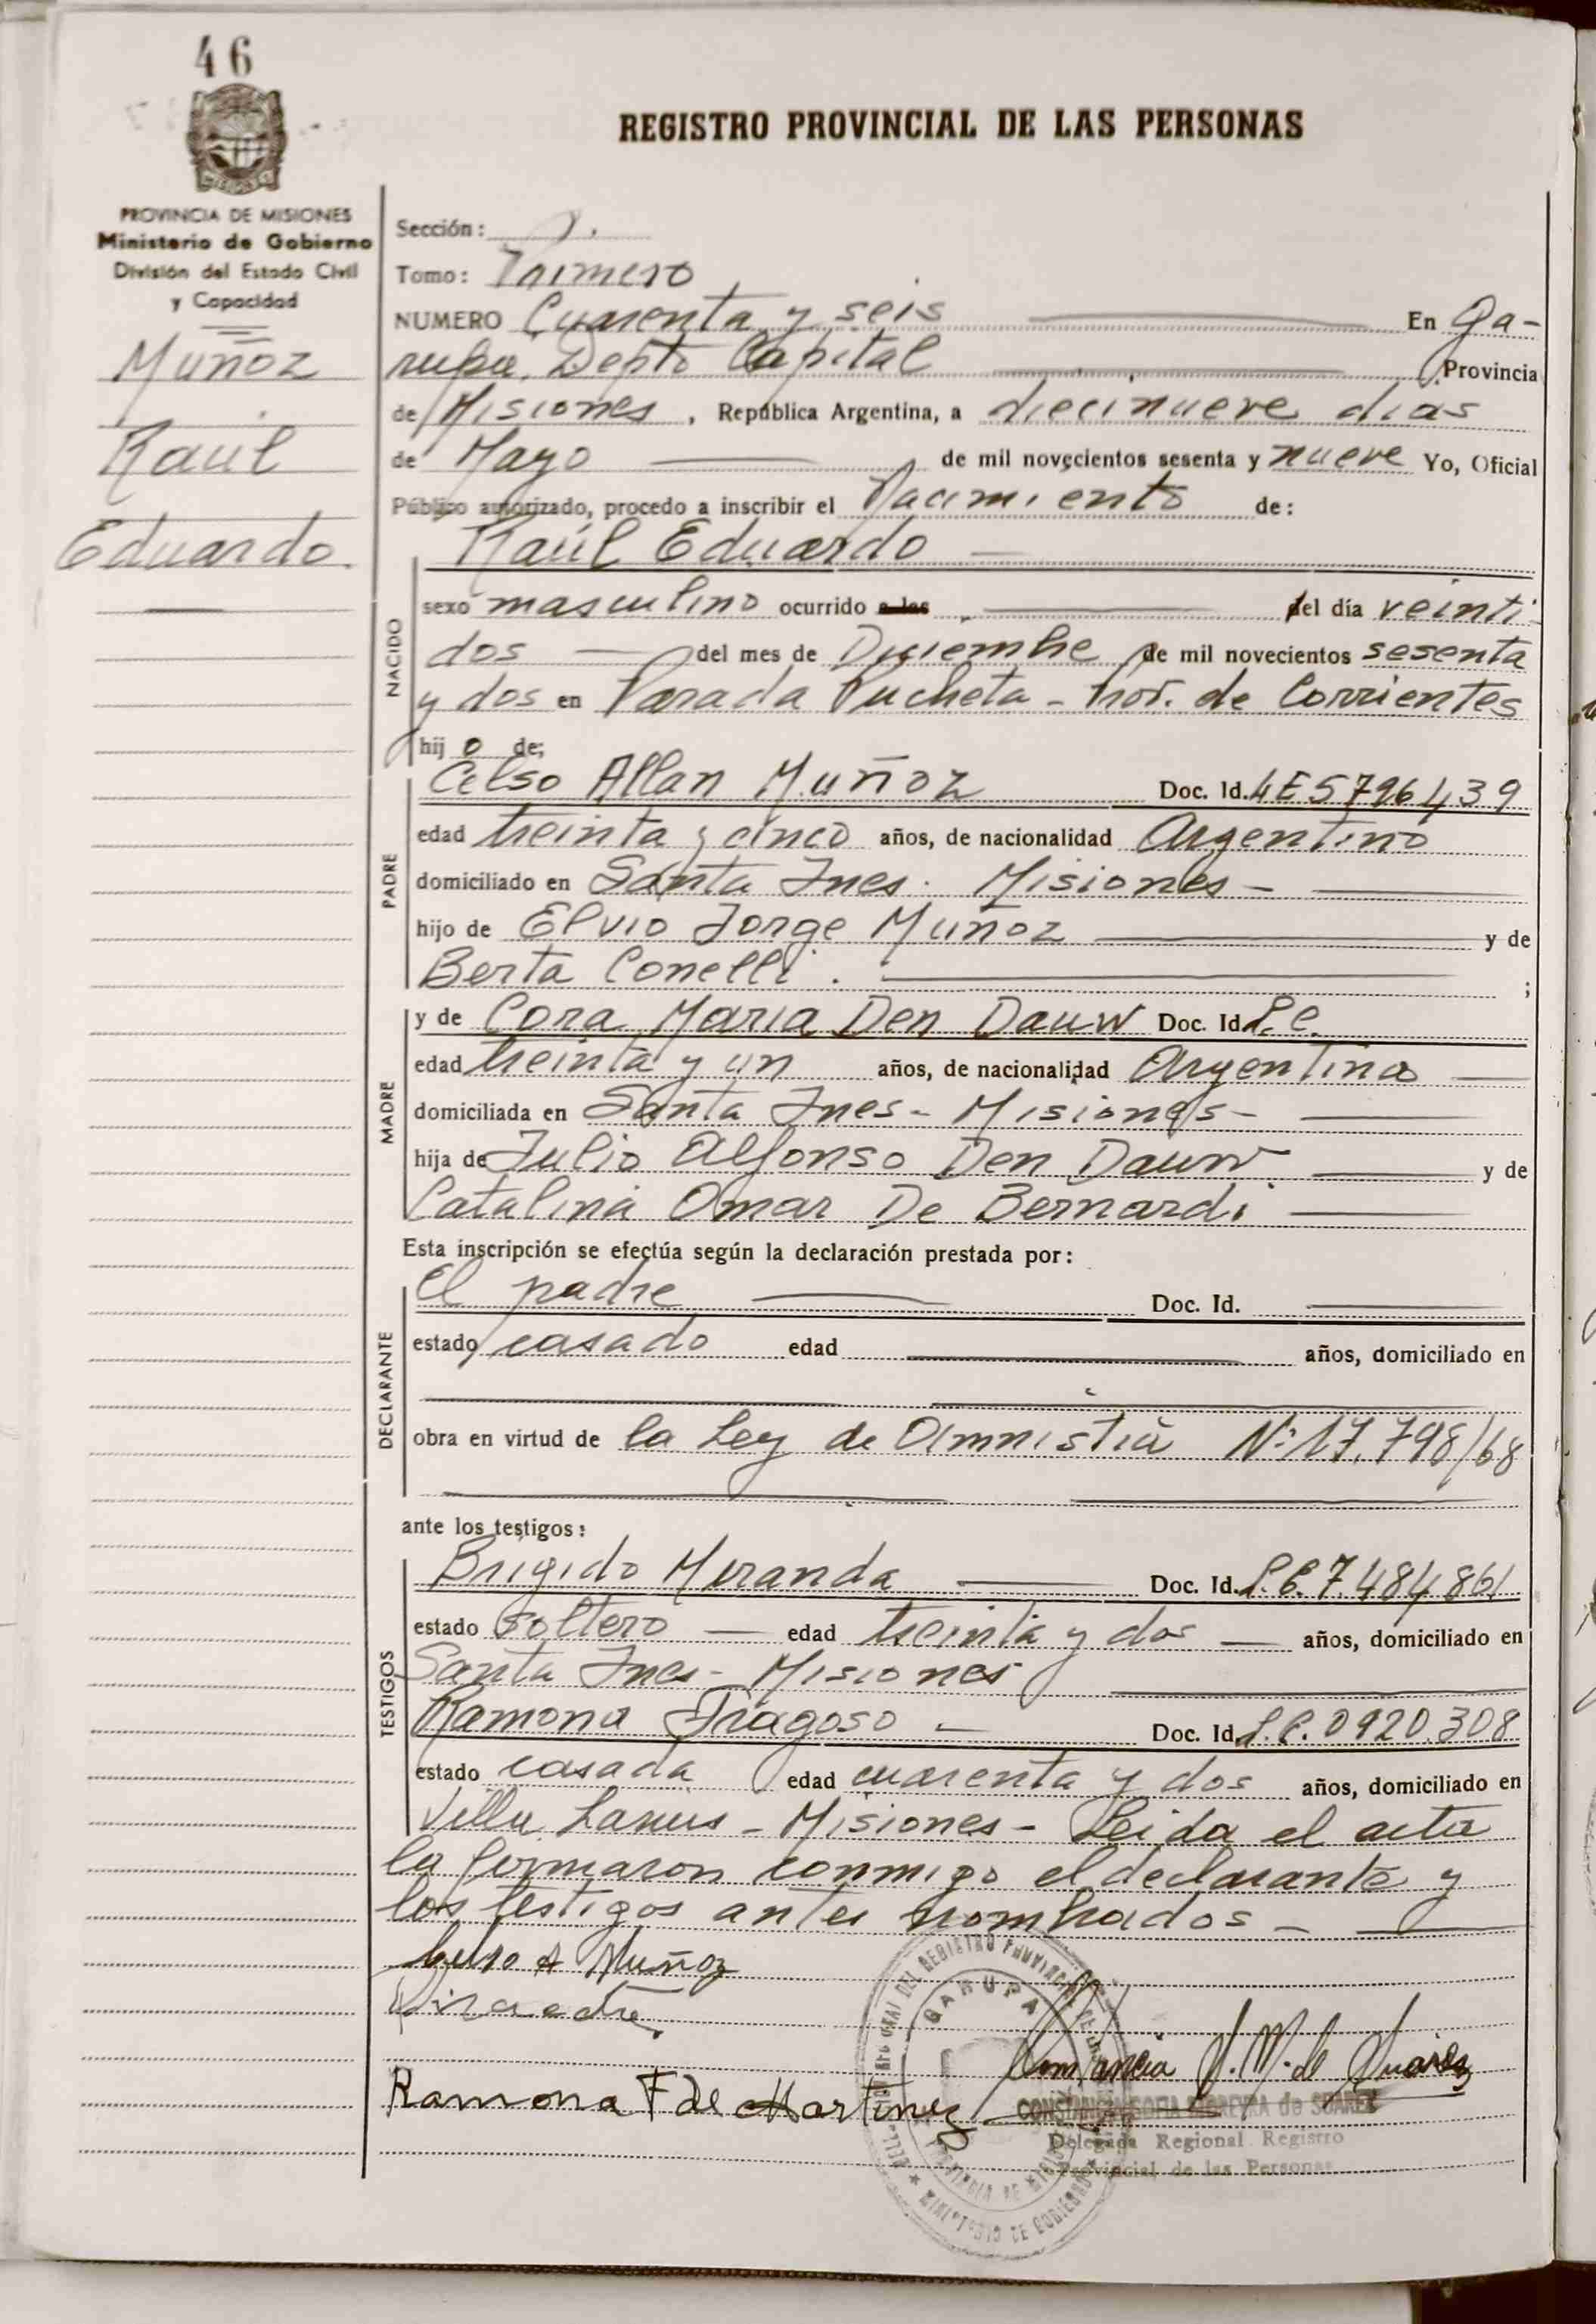 46
REGISTRO PROVINCIAL DE LAS PERSONAS
PROVINCIA DE MISIONES
Ministerio de Gobierno
División del Estado Civil
y Capacidad
Muñoz
Raúl
Eduardo.
Sección:
Tomo: Primero
NUMERO Cuarenta y seis En Ga-
rupa. Depto Capital Provincia
de Misiones, República Argentina, a diecinueve dias
de Mayo de mil novecientos sesenta y nueve Yo, Oficial
Público autorizado, procedo a inscribir el Nacimiento de:
Raúl Eduardo
NACIDO
sexo masculino ocurrido a las del día veinti
dos del mes de Diciembre de mil novecientos sesenta
y dos en Parada Pucheta - Prov. de Corrientes
hijo de:
PADRE
Celso Allan Muñoz Doc. Id. LE 5796439
edad treinta y cinco años, de nacionalidad Argentino
domiciliado en Santa Ines. Misiones -
hijo de Elvio Jorge Muñoz y de
Berta Conelli. ;
MADRE
y de Cora Maria Den Dauw Doc. Id.
edad treinta y un años, de nacionalidad Argentina
domiciliada en Santa Ines - Misiones -
hija de Julio Alfonso Den Dauw y de
Catalina Omar De Bernardi
Esta inscripción se efectúa según la declaración prestada por:
DECLARANTE
El padre Doc. Id.
estado casado edad años, domiciliado en
obra en virtud de la Ley de Amnistia N° 17.798/68
ante los testigos:
TESTIGOS
Brigido Miranda Doc. Id. 7.484.861
estado soltero edad treinta y dos años, domiciliado en
Santa Ines - Misiones
Ramona Fragoso Doc. Id. 0920.308
estado casada edad cuarenta y dos años, domiciliado en
Villa Lanus - Misiones - Leida el acta
la firmaron conmigo el declarante y
los testigos antes nombrados -
Celso A Muñoz
Ramona F de Martinez
Constancia S. M. de Suarez
GARUPA
CONSTANCIA SOFIA MOREYRA de SUAREZ
Delegada Regional Registro
Provincial de las Personas
PROVINCIA DE MISIONES
MINISTERIO DE GOBIERNO